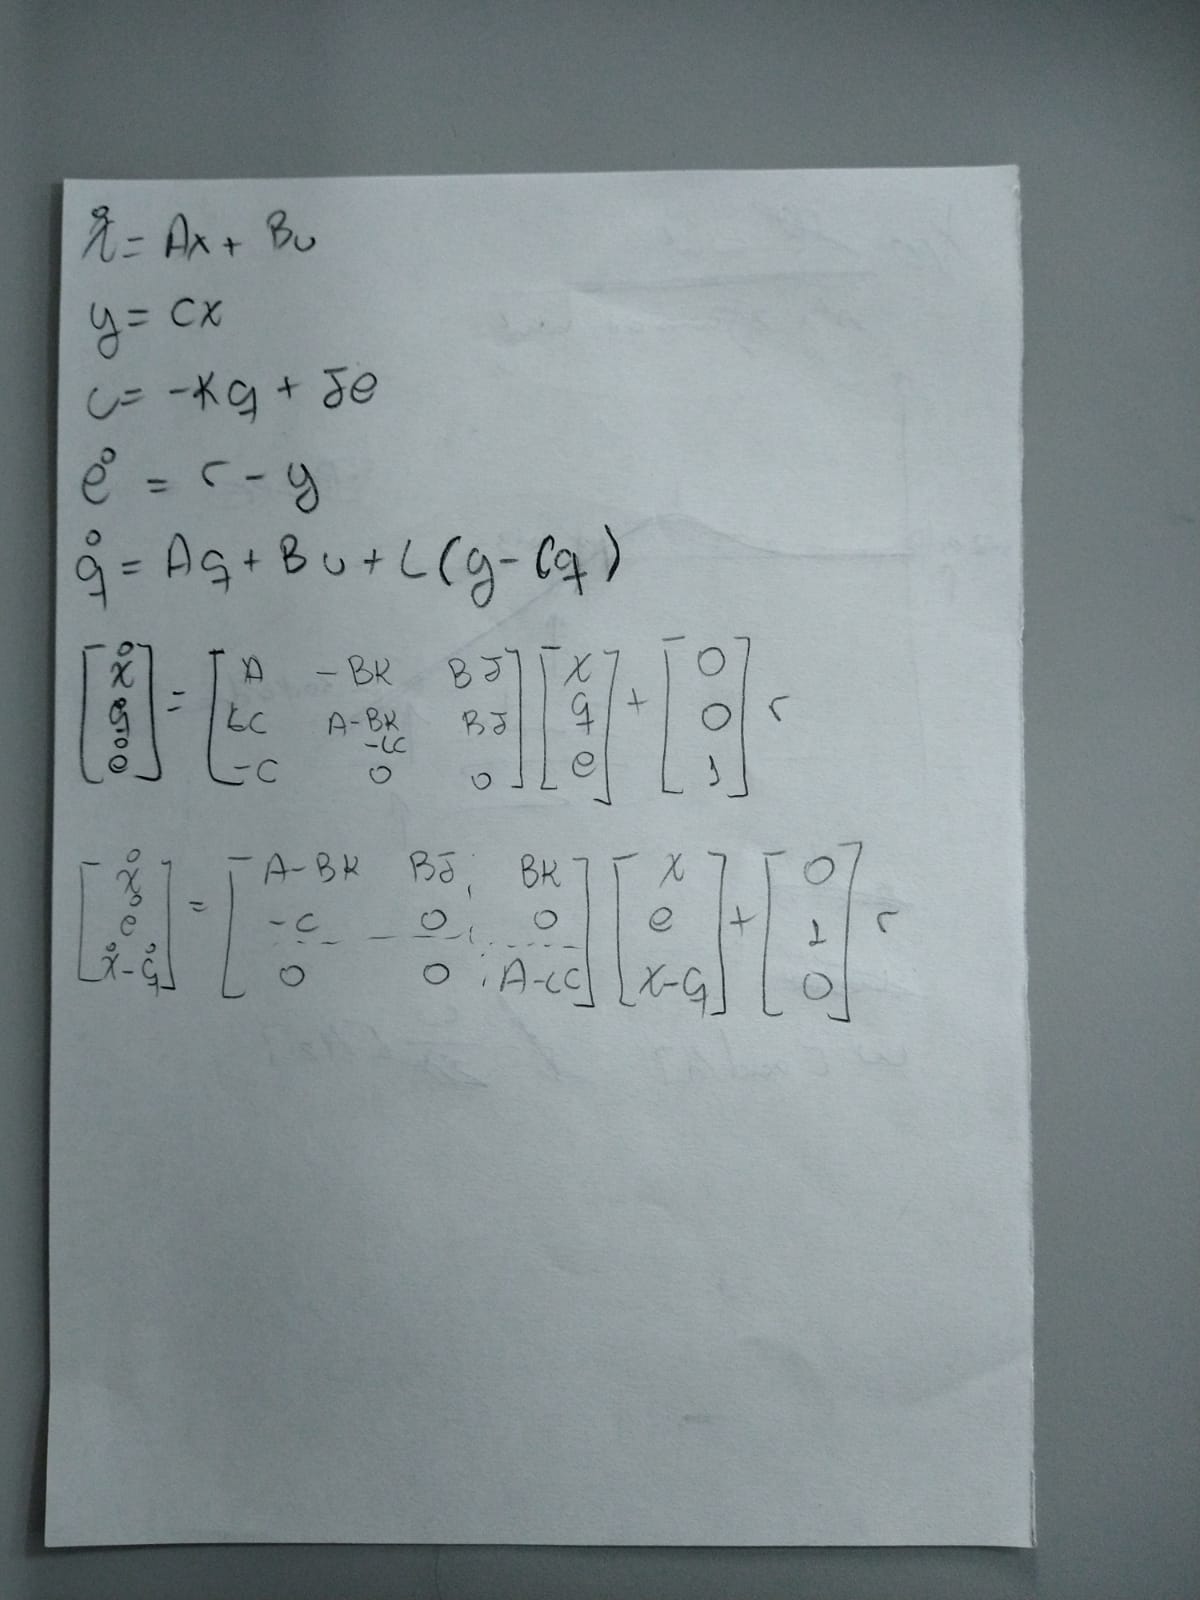 ẋ = Ax + Bu
y = Cx
u = -Kq + Je
ė = r - y
q̇ = Aq + Bu + L(y - Cq)
[ẋ q̇ ė] = [A -BK BJ; LC A-BK-LC BJ; -C 0 0] [x q e] + [0 0 1] r
[ẋ ė ẋ-q̇] = [A-BK BJ BK; -C 0 0; 0 0 A-LC] [x e x-q] + [0 1 0] r